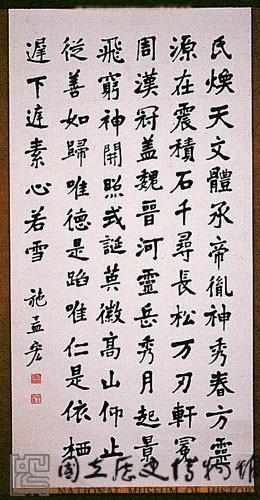 氏煥天文體承帝胤神秀春方靈
源在震積石千尋長松万刃軒冕
周漢冠盖魏晉河靈岳秀月起景
飛窮神開照式誕莫徽高山仰止
從善如歸唯德是蹈唯仁是依栖
遲下迬素心若雪
施孟宏
國立歷史博物館
NATIONAL MUSEUM OF HISTORY